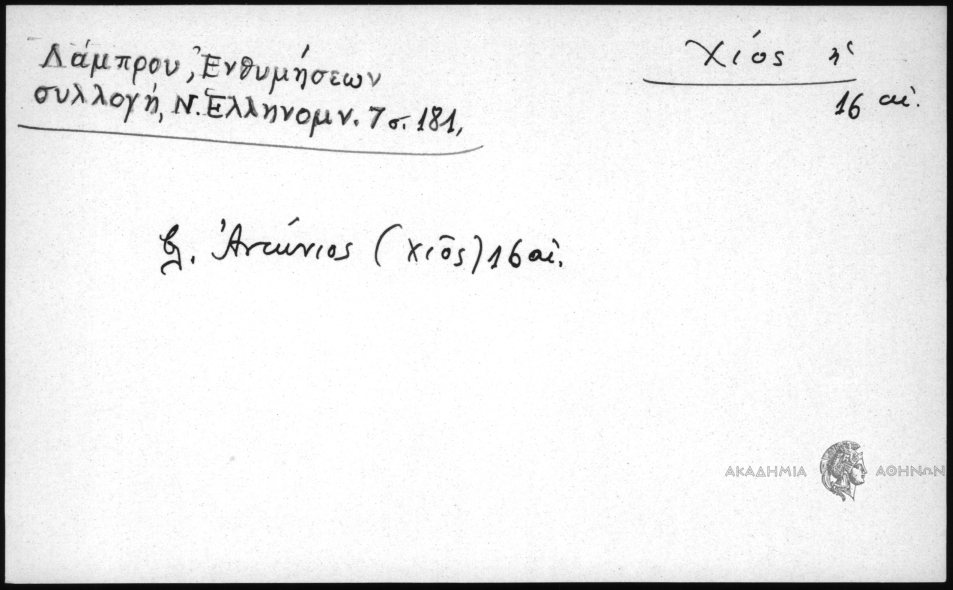 Λάμπρου, Ἐνθυμήσεων
συλλογή, Ν. Ἑλληνομν. 7 σ. 181,
Χίος ἡ
16 αἰ.
βλ. Ἀντώνιος (Χῖος) 16 αἰ.
ΑΚΑΔΗΜΙΑ ΑΘΗΝΩΝ